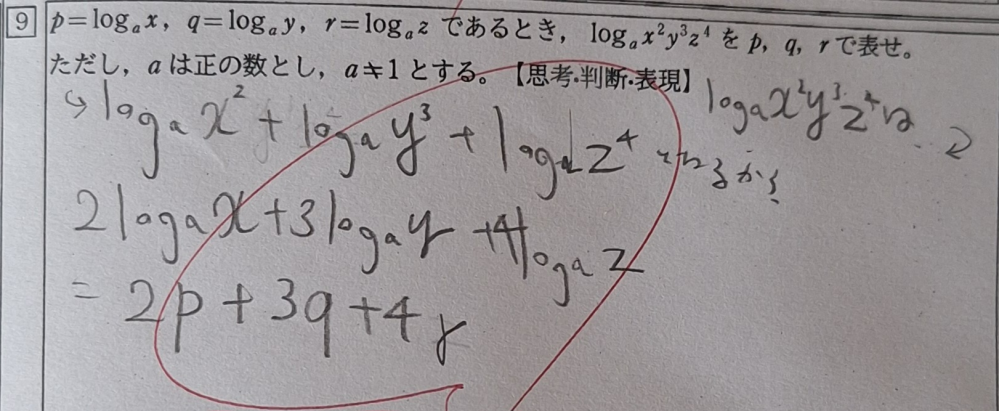 9 p=logₐx, q=logₐy, r=logₐz であるとき, logₐx²y³z⁴ を p, q, r で表せ。
ただし, a は正の数とし, a≠1 とする。【思考・判断・表現】
logₐx²y³z⁴は
↳ logₐx² + logₐy³ + logₐz⁴ となるから
2logₐx+3logₐy+4logₐz
= 2p+3q+4r